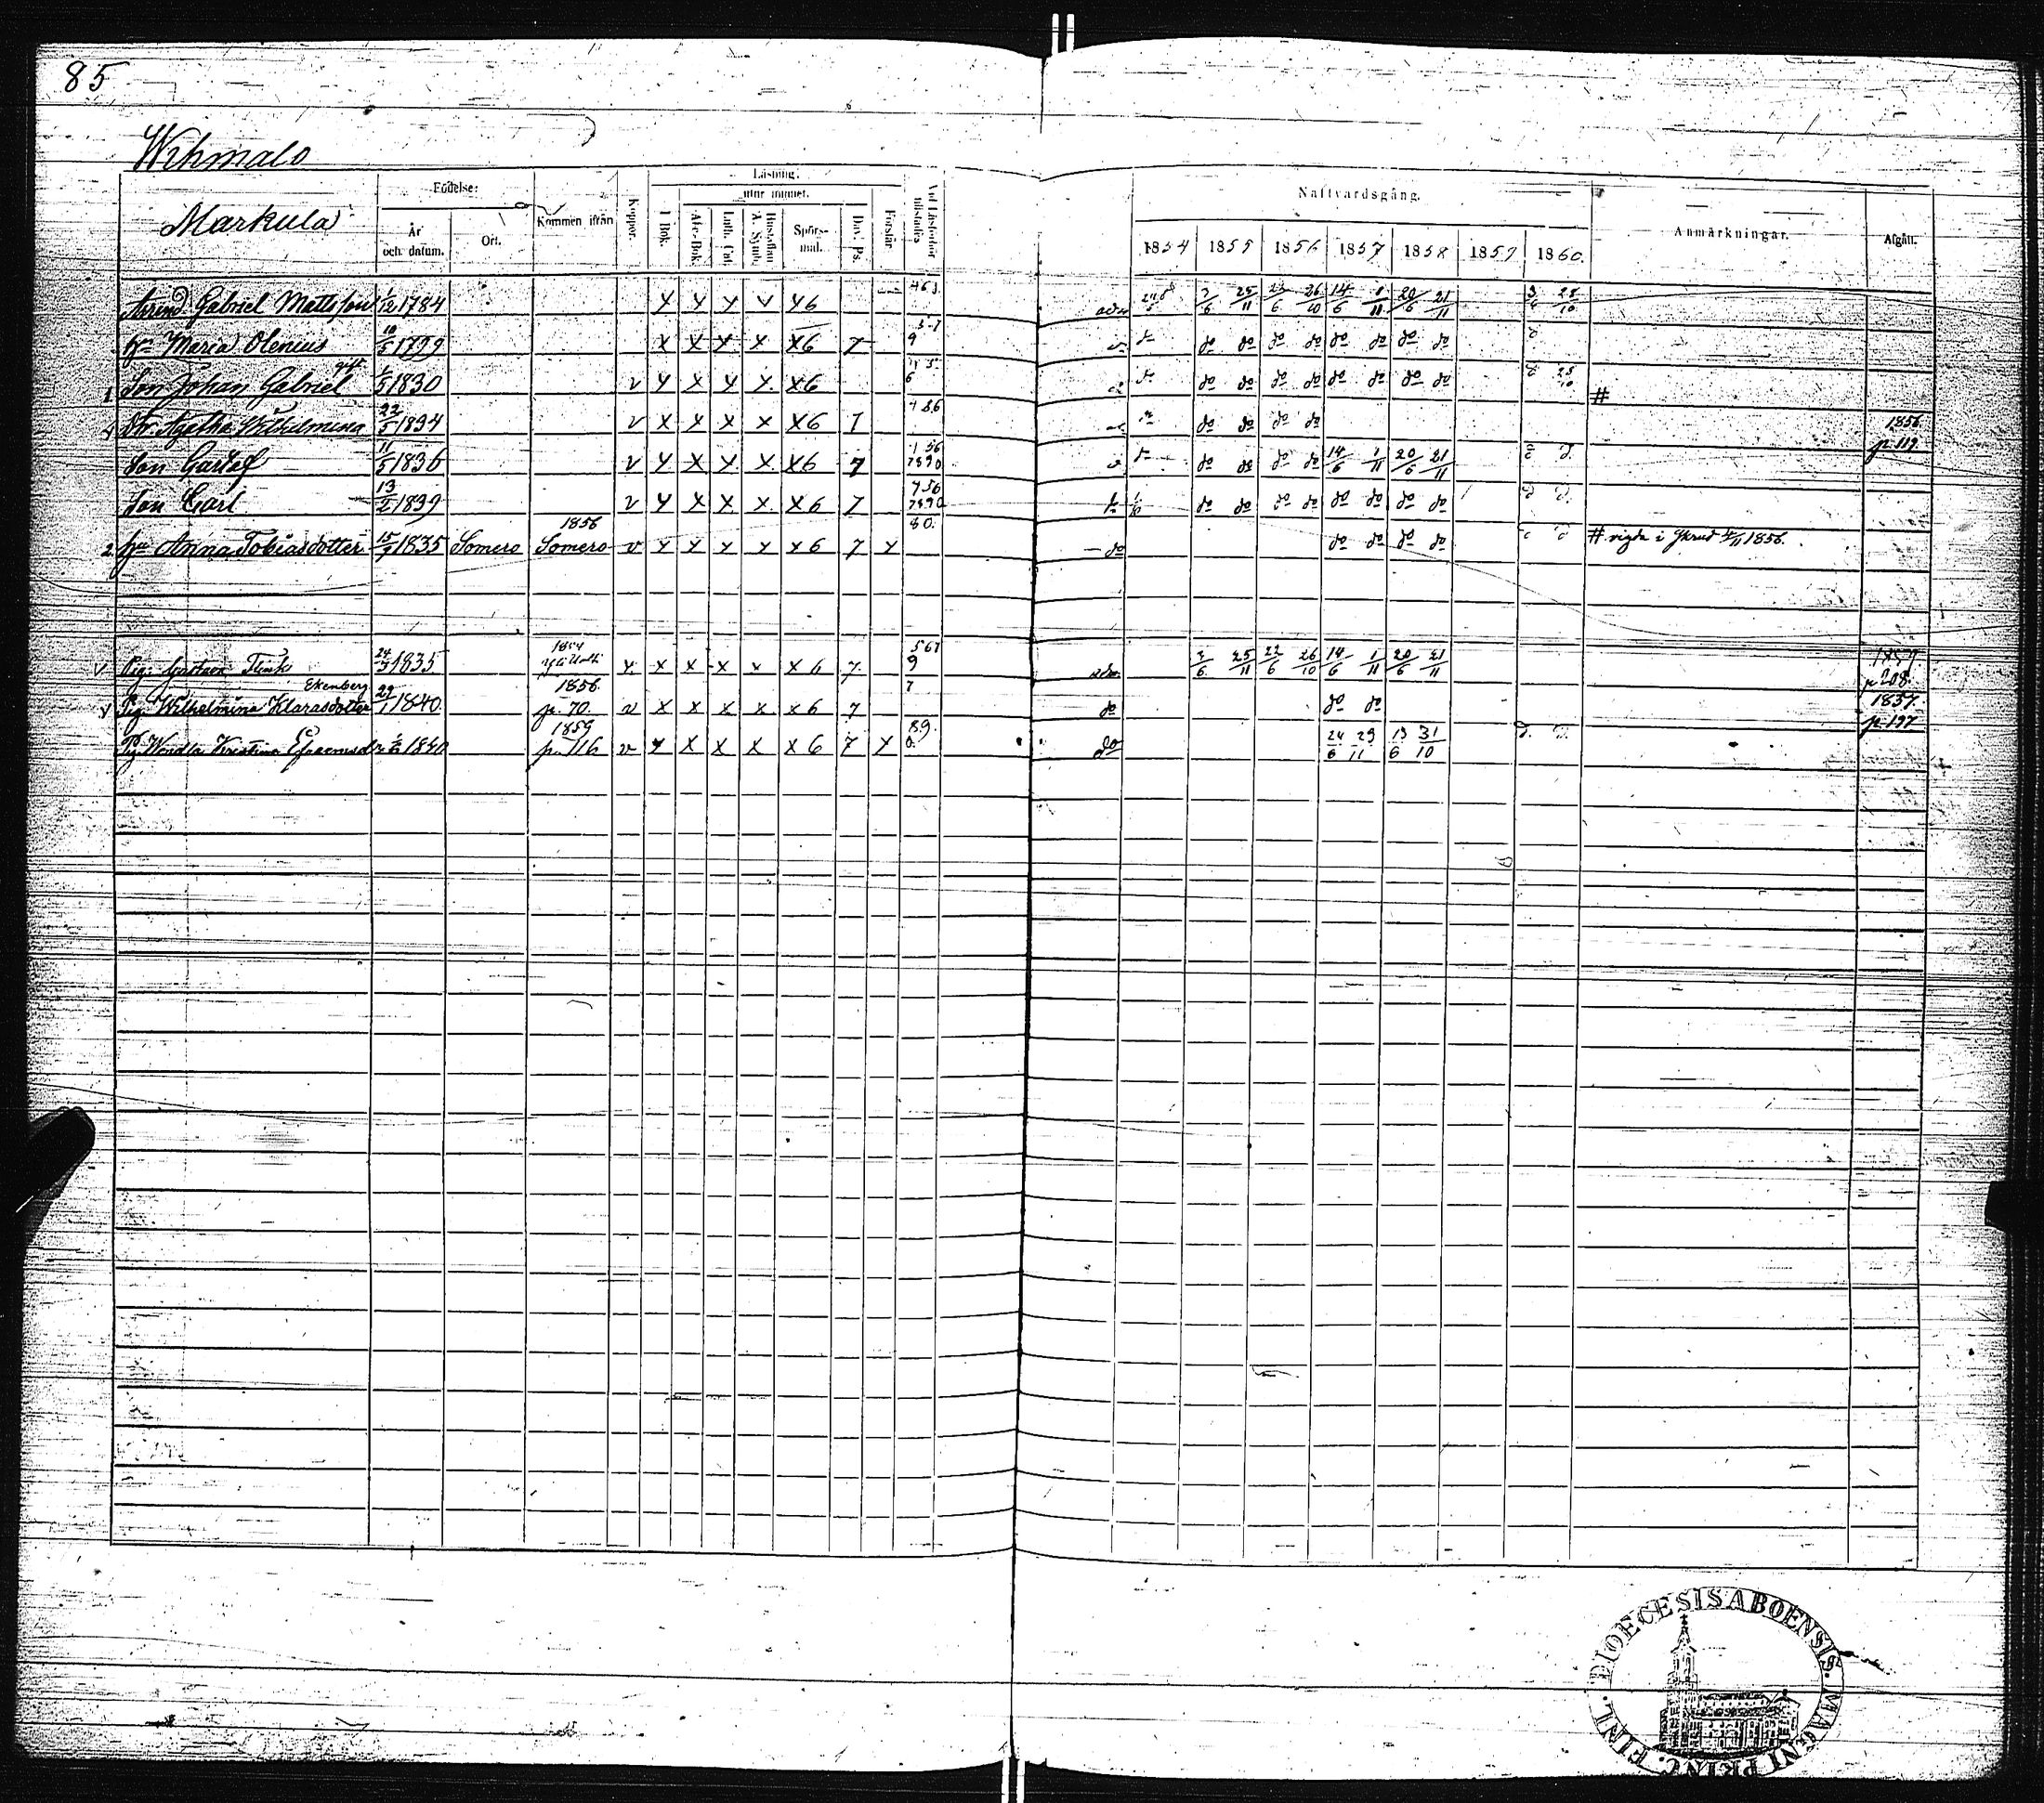 85
Wihmalo
Markula
Födelse:
År och datum.
Ort.
Kommen ifrån
Koppor.
Läsning:
utur minnet.
I Bok.
Abc-Bok.
Luth. Cat.
Hustaflan A. Symb.
Spörs-mål.
Dav. Ps.
Förstår
Vid Läsförhör tillstädes
Nattvardsgång.
1854 1855 1856 1857 1858 1859 1860.
Anmärkningar.
Afgått.
Arrend. Gabriel Mattsson 1/12 1784 x x x v x6 463. 3/6 25/11 22/6 26/10 14/6 1/11 20/6 21/11 3/6 28/10
Hu Maria Olenius 10/5 1799 x x x x x6 7 9 do do do do do do do do
1 Son Johan Gabriel gift 1/5 1830 v x x x x x6 6 do do do do do do do do 28/10 #
Dr. Agatha Wilhelmina 22/5 1834 v x x x x x6 7 486 do do do do 1856 p. 119.
Son Gustaf 11/5 1836 v x x x x x6 7 156 7890 do do do do 14/6 1/11 20/6 21/11
Son Carl 13/2 1839 v x x x x x6 7 756 7890 do do do do do do do do
2 Hu Anna Tobiasdotter 15/7 1835 Somero 1856 Somero v x x x x x6 7 x 80. do do do do do # vigda i Somero 4/11 1856.
v Pig. Gustava Flink 24/3 1835 1854 v x x x x x6 7 567 9 3/6 25/11 22/6 26/10 14/6 1/11 20/6 21/11 1859 p 208.
v Pig. Wilhelmina Klarasdotter Ekenberg 29/1 1840 1856. p. 70. v x x x x x6 7 7 do do do 1857. p. 197
Pig Wendla Kristina Efraimsdr 1840 1859 p. 116 v x x x x x6 7 x 89. 0. do 24/6 29/11 13/6 31/10
DIOECESIS ABOENSIS. MAGNI PRINC. FINL.